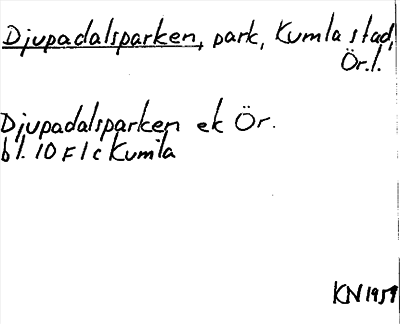 Djupadalsparken, park, Kumla stad,
Ör.l.
Djupadalsparken ek Ör.
bl. 10 F 1 c Kumla
KN 1959